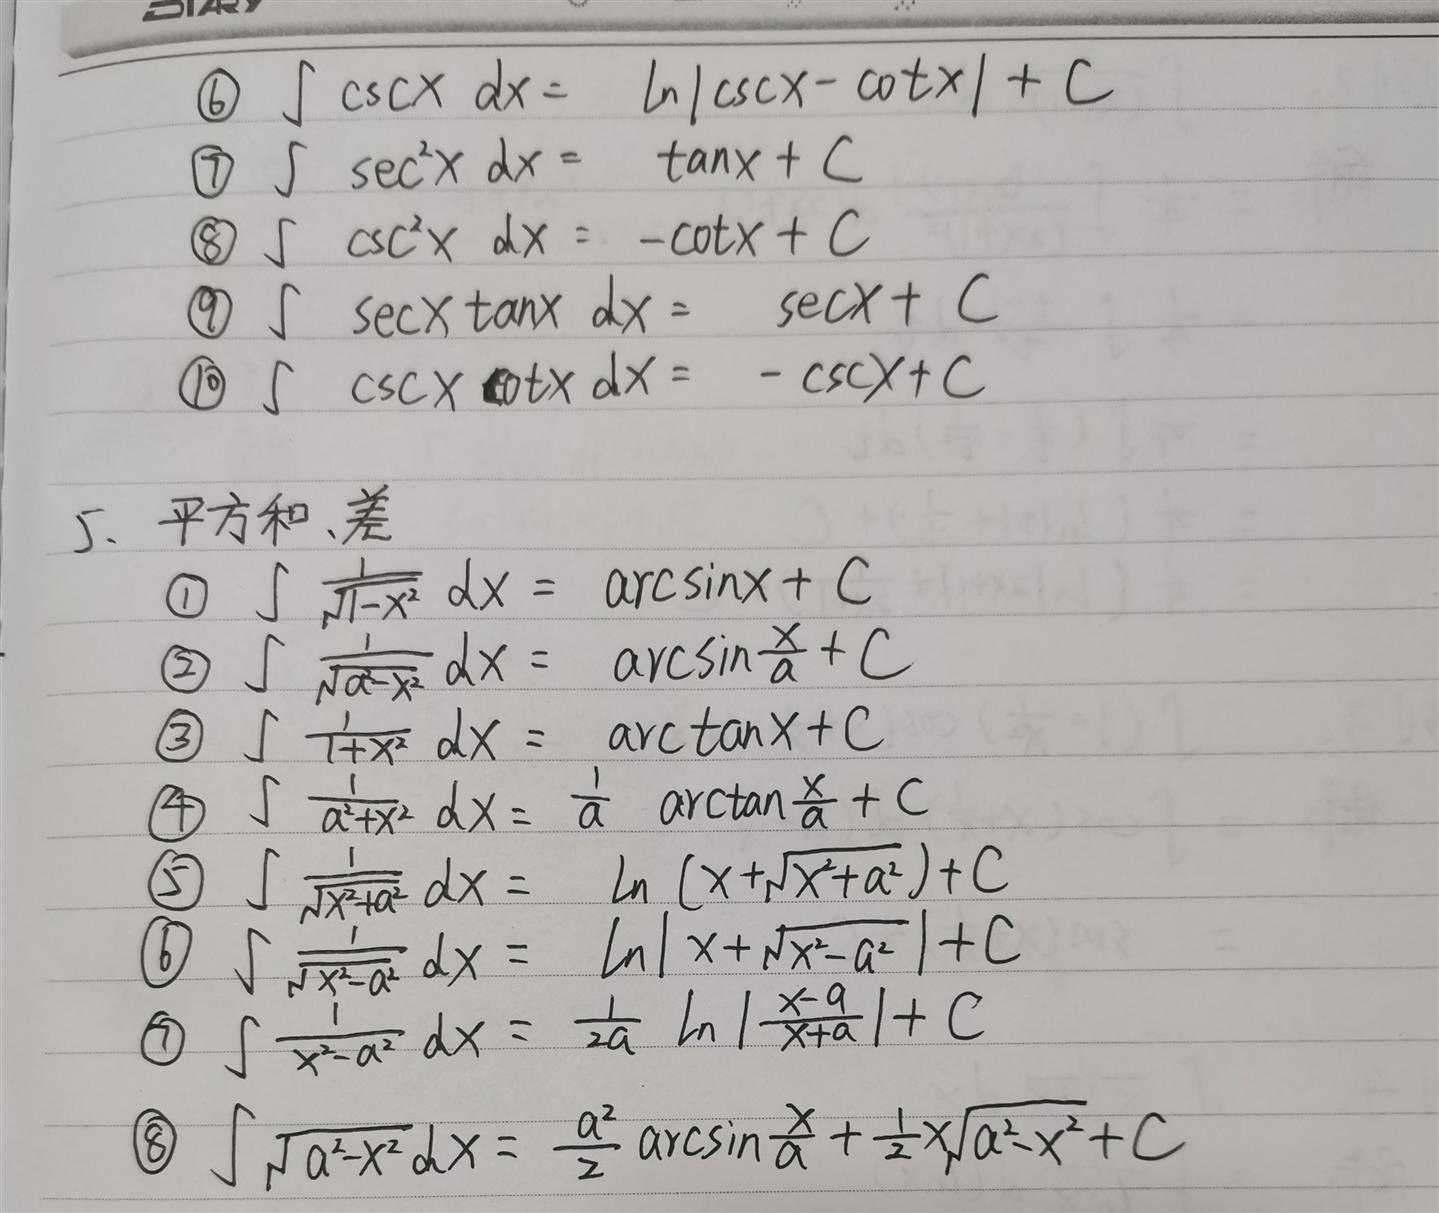 DIARY
⑥ ∫ cscx dx = ln|cscx - cotx| + C
⑦ ∫ sec²x dx = tanx + C
⑧ ∫ csc²x dx = -cotx + C
⑨ ∫ secx tanx dx = secx + C
⑩ ∫ cscx cotx dx = -cscx + C
5. 平方和、差
① ∫ 1/√(1-x²) dx = arcsinx + C
② ∫ 1/√(a²-x²) dx = arcsin x/a + C
③ ∫ 1/(1+x²) dx = arctanx + C
④ ∫ 1/(a²+x²) dx = 1/a arctan x/a + C
⑤ ∫ 1/√(x²+a²) dx = ln (x+√(x²+a²)) + C
⑥ ∫ 1/√(x²-a²) dx = ln|x+√(x²-a²)| + C
⑦ ∫ 1/(x²-a²) dx = 1/(2a) ln|(x-a)/(x+a)| + C
⑧ ∫ √(a²-x²) dx = a²/2 arcsin x/a + 1/2 x√(a²-x²) + C